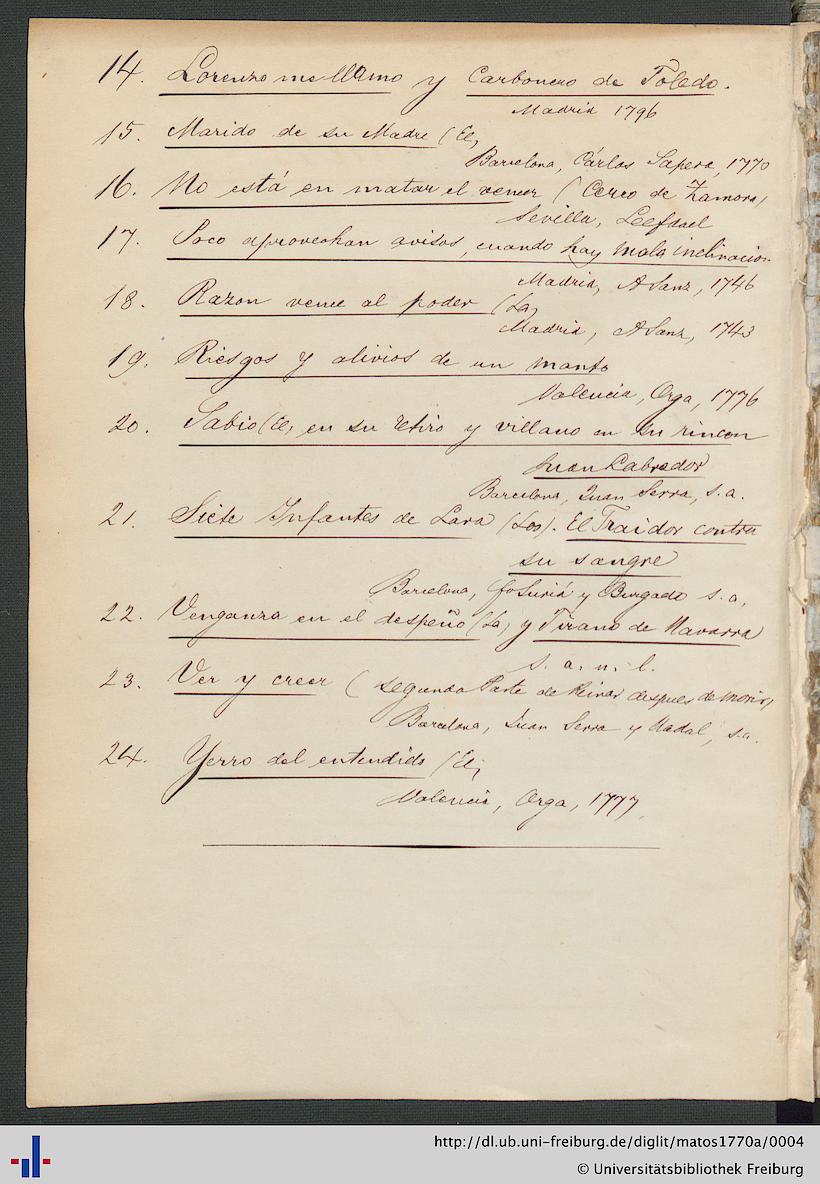 14. Lorenzo me llamo y Carbonero de Toledo.
Madrid 1796
15. Marido de su Madre (El)
Barcelona, Cárlos Sapera, 1770
16. No está en matar el vencer (Cerco de Zamora)
Sevilla, Leefdael
17. Poco aprovechan avisos, cuando hay mala inclinacion
Madrid, A Sanz, 1746
18. Razon vence al poder (La)
Madrid, A Sanz, 1743
19. Riesgos y alivios de un manto
Valencia, Orga, 1776
20. Sabio (El) en su retiro y villano en su rincon
Juan Labrador
Barcelona, Juan Serra, s. a.
21. Siete Infantes de Lara (Los). El Traidor contra
su sangre
Barcelona, y Burgada s. a.
22. Venganza en el despeño (La) y Tirano de Navarra
s. a. n. l.
23. Ver y creer (Segunda Parte de Reinar despues de morir)
Barcelona, Juan Serra y Nadal, s. a.
24. Yerro del entendido (El)
Valencia, Orga, 1777.
http://dl.ub.uni-freiburg.de/diglit/matos1770a/0004
© Universitätsbibliothek Freiburg